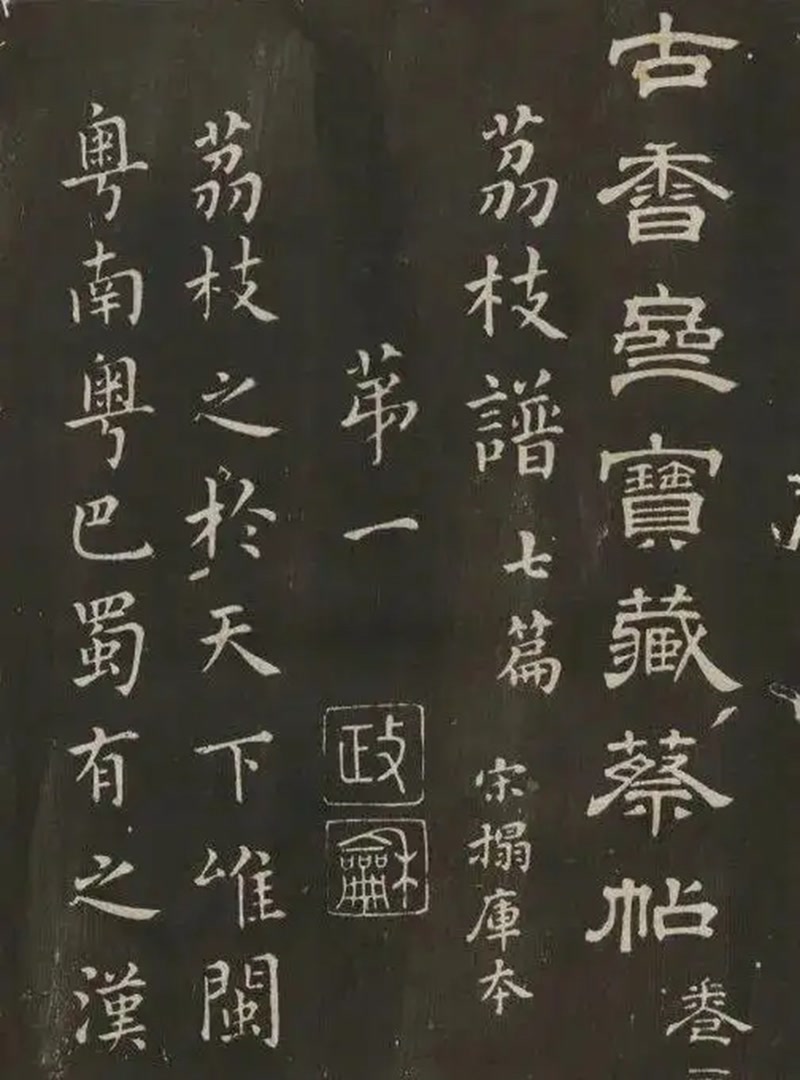 古香齋寶藏蔡帖 卷一
荔枝譜 七篇 宋搨庫本
苐一
政
龢
荔枝之於天下唯閩
粤南粤巴蜀有之漢